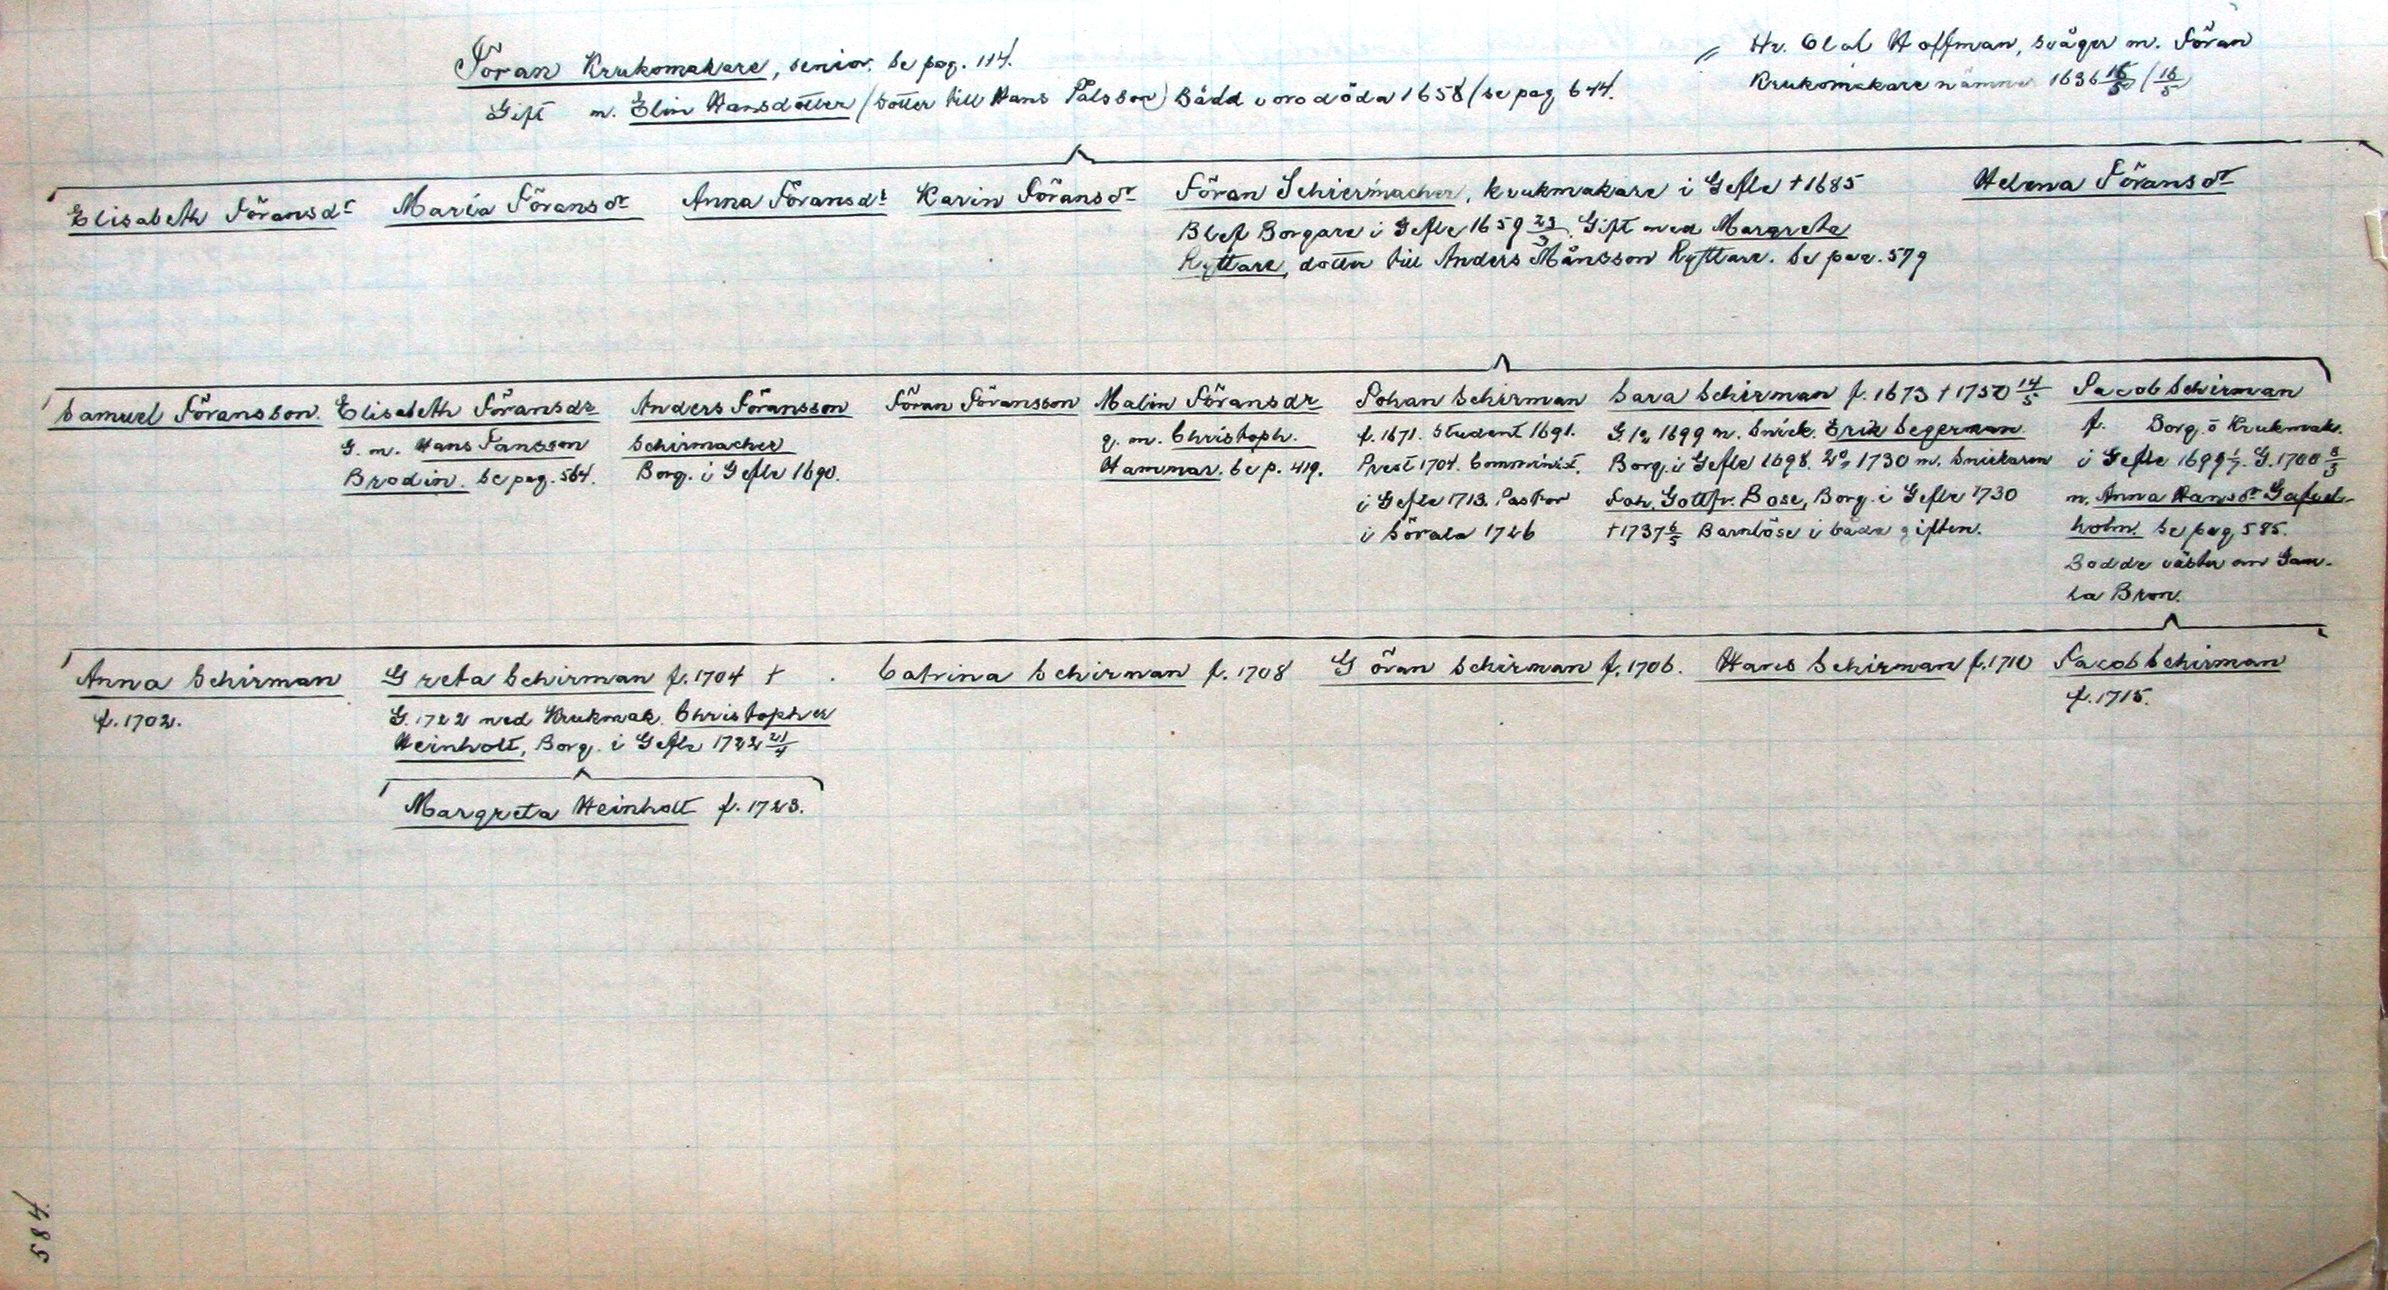 Jöran Krukomakare, senior. Se pag. 114.
Gift m. Elin Hansdotter (dotter till Hans Pålsson) Båda voro döda 1658 (se pag 644.
" Hr. Olof Hoffman, svåger m. Jöran
Krukomakare nämnes 1636 16/5 (16/5)
Elisabeth Jöransdr Maria Jöransdr Anna Jöransdr Karin Jöransdr Jöran Schiermacher, krukmakare i Gefle †1685 Helena Jöransdr
Blef Borgare i Gefle 1659 23/3. Gift med Margreta
Ryttare, dotter till Anders Månsson Ryttare. Se pag. 579
Samuel Jöransson.
Elisabeth Jöransdr
G. m. Hans Jansson
Brodin. Se pag. 564.
Anders Jöransson
Schirmacher
Borg. i Gefle 1690.
Jöran Jöransson
Malin Jöransdr
g. m. Christoph.
Hammar. Se p. 419.
Johan Schirman
f. 1671. Student 1691.
Prest 1704. Comminist.
i Gefle 1713. Pastor
i Söråla 1726
Sara Schirman f. 1673 †1750 14/5
G. 1o 1699 m. Snick. Erik Segerman
Borg. i Gefle 1698. 2o, 1730 m. Snickaren
Joh. Gottfr. Bose, Borg. i Gefle 1730
†1737 6/5 Barnlöse i båda giften.
Jacob Schirman
f. Borg. o Krukmak.
i Gefle 1699 1/7. G. 1700 8/3
m. Anna Hansdr Gafvel-
holm. Se pag. 585.
Bodde väster om Gam-
la Bron.
Anna Schirman
f. 1702.
Greta Schirman f. 1704 †
G. 1722 med Krukmak. Christopher
Heinholt, Borg. i Gefle 1722 21/4
Margreta Heinholt f. 1723.
Catrina Schirman f. 1708
Göran Schirman f. 1706.
Hans Schirman f. 1710
Jacob Schirman
f. 1715.
584